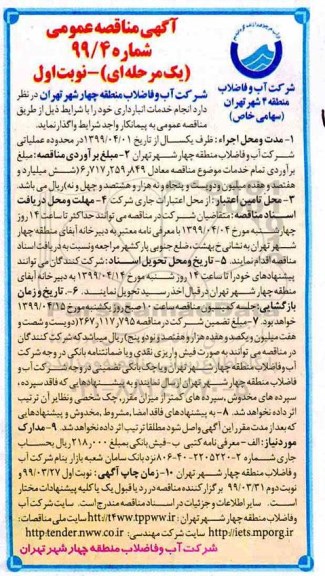 آگهی مناقصه عمومی
شماره ۹۹/۴
(یک مرحله‌ای)-نوبت اول
شرکت آب و فاضلاب
منطقه ۴ شهر تهران
(سهامی خاص)
شرکت آب و فاضلاب منطقه چهار شهر تهران در نظر
دارد انجام خدمات انبارداری خود را با شرایط ذیل از طریق
مناقصه عمومی به پیمانکار واجد شرایط واگذار نماید.
۱-مدت و محل اجراء: ظرف یکسال از تاریخ ۱۳۹۹/۰۴/۰۱ در محدوده عملیاتی
شرکت آب و فاضلاب منطقه چهار شهر تهران ۲-مبلغ برآوردی مناقصه: مبلغ
برآوردی تمام خدمات موضوع مناقصه معادل ۶,۷۱۷,۲۵۹,۸۴۹ (شش میلیارد و
هفتصد و هفده میلیون و دویست و پنجاه و نه هزار و هشتصد و چهل و نه) ریال می باشد.
۳-محل تامین اعتبار: از محل اعتبارات جاری شرکت ۴-مهلت و محل دریافت
اسناد مناقصه: متقاضیان شرکت در مناقصه می توانند حداکثر تا ساعت ۱۴ روز
چهارشنبه مورخ ۱۳۹۹/۰۴/۰۴ با معرفی نامه معتبر به دبیرخانه آبفای منطقه چهار
شهر تهران به نشانی خ بهشت، ضلع جنوبی پارک شهر مراجعه و نسبت به دریافت اسناد
مناقصه اقدام نمایند. ۵-تاریخ و محل تحویل اسناد: شرکت کنندگان می توانند
پیشنهادهای خود را تا ساعت ۱۴ روز شنبه مورخ ۱۳۹۹/۰۴/۱۴ به دبیرخانه آبفای
منطقه چهار شهر تهران در قبال اخذ رسید تحویل نمایند. ۶-تاریخ و زمان
بازگشایی: جلسه کمیسیون مناقصه ساعت ۱۰ صبح روز یکشنبه مورخ ۱۳۹۹/۰۴/۱۵
خواهد بود. ۷-مبلغ تضمین شرکت در مناقصه ۲۶۷,۱۱۷,۷۹۵ (دویست و شصت و
هفت میلیون و یکصد و هفده هزار و هفتصد و نود و پنج) ریال میباشد که شرکت کنندگان
در مناقصه می توانند به صورت فیش واریزی نقدی و یا ضمانتنامه بانکی در وجه شرکت
آب و فاضلاب منطقه چهار شهر تهران و یا چک بانکی تضمین شده در وجه شرکت آب و
فاضلاب منطقه چهار شهر تهران ارسال نمایند و به پیشنهادهایی که فاقد سپرده،
سپرده های مخدوش، سپرده های کمتر از میزان مقرر، چک شخصی و نظایر آن ترتیب
اثر داده نخواهد شد. ۸-به پیشنهادهای فاقد امضا، مشروط، مخدوش و پیشنهادهایی
که بعد از مدت مقرر این آگهی واصل شود مطلقا ترتیب اثر داده نخواهد شد. ۹-مدارک
مورد نیاز: الف-معرفی نامه کتبی ب-فیش بانکی بمبلغ ۲۱۸,۰۰۰ ریال بحساب
جاری شماره ۲-۲۲۰۵۲۲۰-۴۰-۸۰۶ نزد بانک سامان شعبه بازار بنام شرکت آب
و فاضلاب منطقه چهار شهر تهران ۱۰-زمان چاپ آگهی: نوبت اول ۹۹/۰۳/۲۷ و
نوبت دوم ۹۹/۰۳/۳۱ برگزار کننده مناقصه در رد یا قبول یک یا کلیه پیشنهادات مختار
است. سایر اطلاعات و جزئیات در اسناد مناقصه مندرج است. سایت شرکت آب
و فاضلاب منطقه چهار شهر تهران: htt://www.tppww.ir سایت ملی مناقصات:
http://iets.mporg.ir سایت شرکت مهندسی: http:tender.nww.co.ir
شرکت آب و فاضلاب منطقه چهار شهر تهران